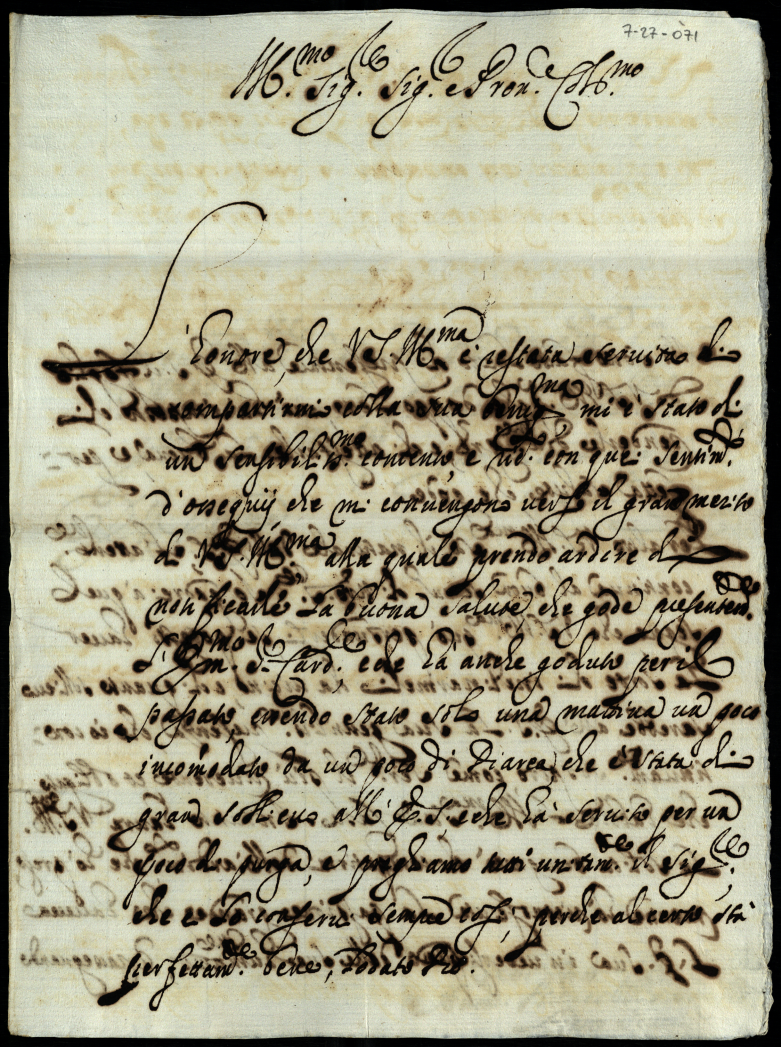 7-27-071
Ill.mo Sig.re Sig.re e Pron.e Col.mo
L'honore, che V.S. Ill.ma è restata servita di
compartirmi colla sua benig.ma mi è stato di
un sensibilis.mo contento, e con quei sentim.ti
d'ossequij che mi convengono verso il gran merito
di V.S. Ill.ma alla quale prendo ardire di
notificarle la buona salute, che gode presentem.te
l'Em.mo S.r Card.le e che hà anche goduto per il
passato, essendo stato solo una mattina un poco
incomodato da un poco di Diarea, che è stata di
gran sollievo all' E.S. e che hà servito per un
poco di purga, e preghiamo tutti unitam.te il Sig.re
che ce lo conservi sempre così, perche al certo stà
perfettam.te bene, lodato Dio.